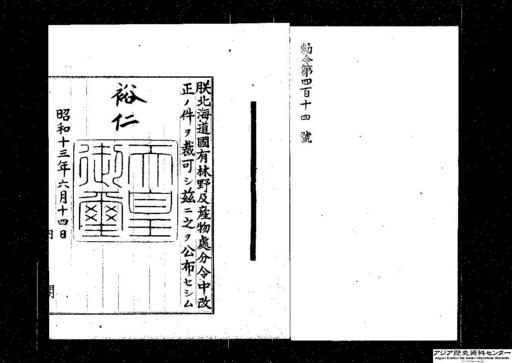 勅令第四百十四號
朕北海道國有林野及産物處分令中改
正ノ件ヲ裁可シ茲ニ之ヲ公布セシム
裕仁
天皇
御璽
昭和十三年六月十四日
アジア歴史資料センター
Japan Center for Asian Historical Records